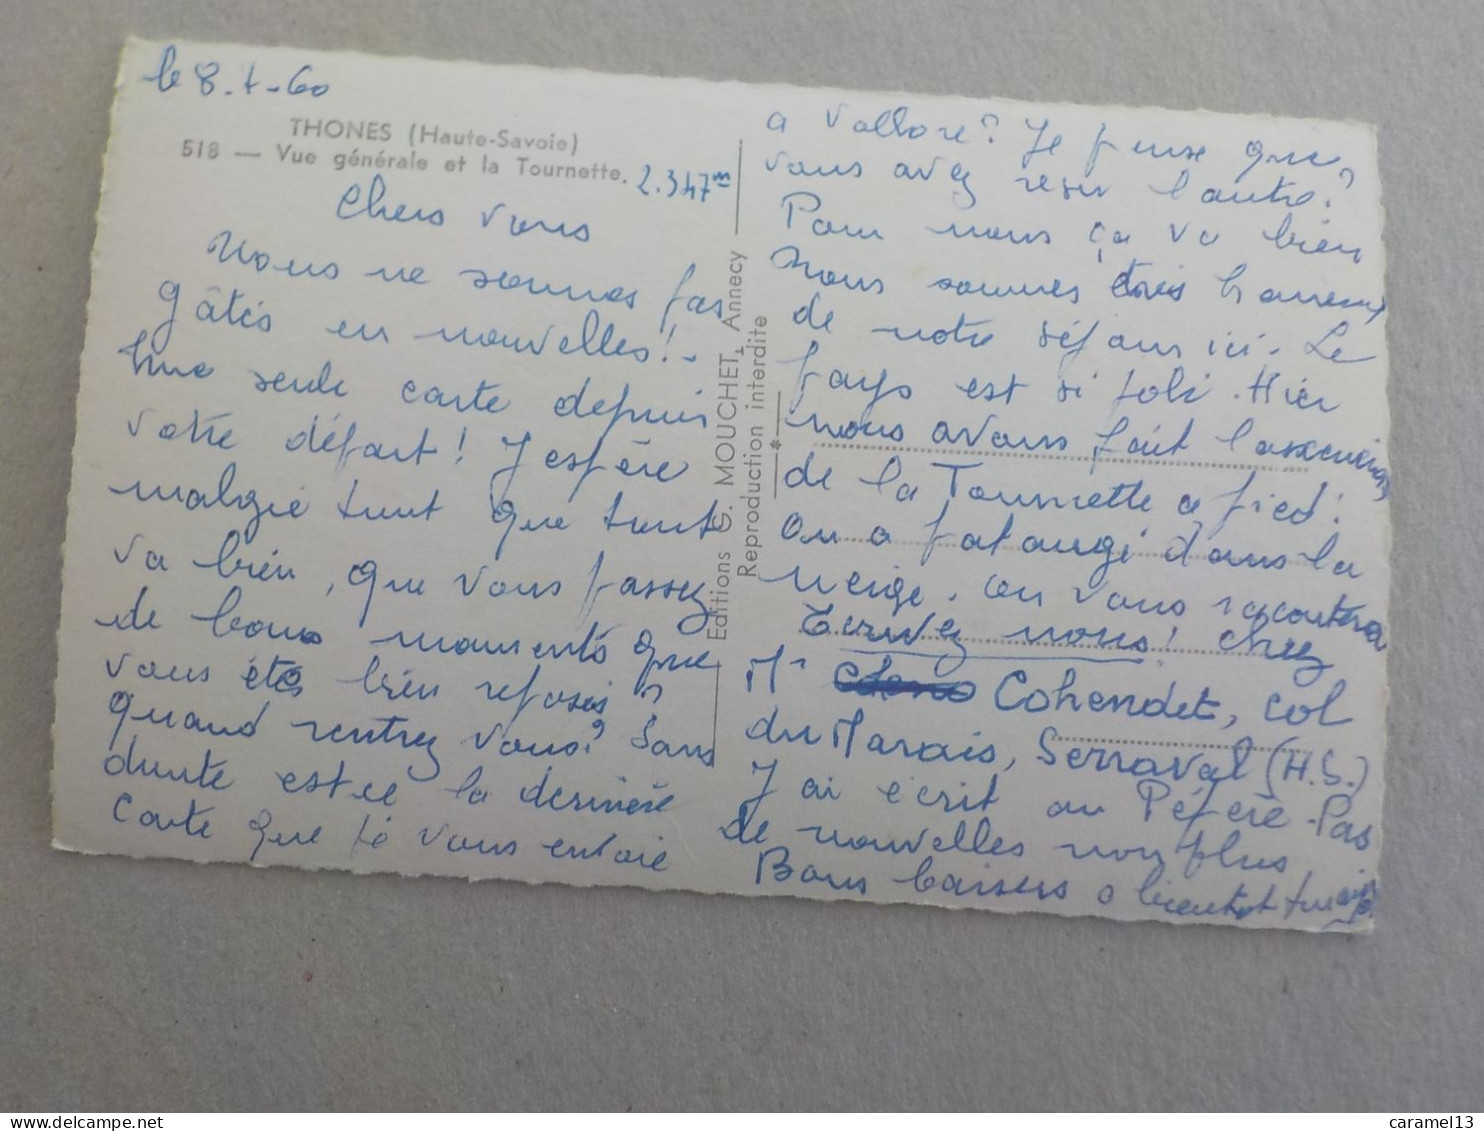 le 8.4-60
THONES (Haute-Savoie)
518 — Vue générale et la Tournette. 2.347m
Chers vous
Nous ne sommes pas
gâtés en nouvelles!-
Une seule carte depuis
votre départ! J'espère
malgré tout que tout
va bien, que vous passez
de bons moments que
vous êtes bien reposés?
quand rentrez vous? Sans
doute est ce la dernière
carte que je vous envoie
Editions G. MOUCHET, Annecy
Reproduction interdite
*
a Vollore? Je pense que
vous avez reçu l'autre?
Pour nous ça va bien
Nous sommes très heureux
de notre séjour ici. Le
pays est si joli. Hier
nous avons fait l'ascension
de la Tournette a pied!
On a pataugé dans la
neige. on vous racontera
Ecrivez nous! chez
Mr Cohendet, col
du Marais, Serraval (H.S.)
J'ai écrit au Pépère. Pas
de nouvelles non plus
Bons baisers a bientot
caramel13